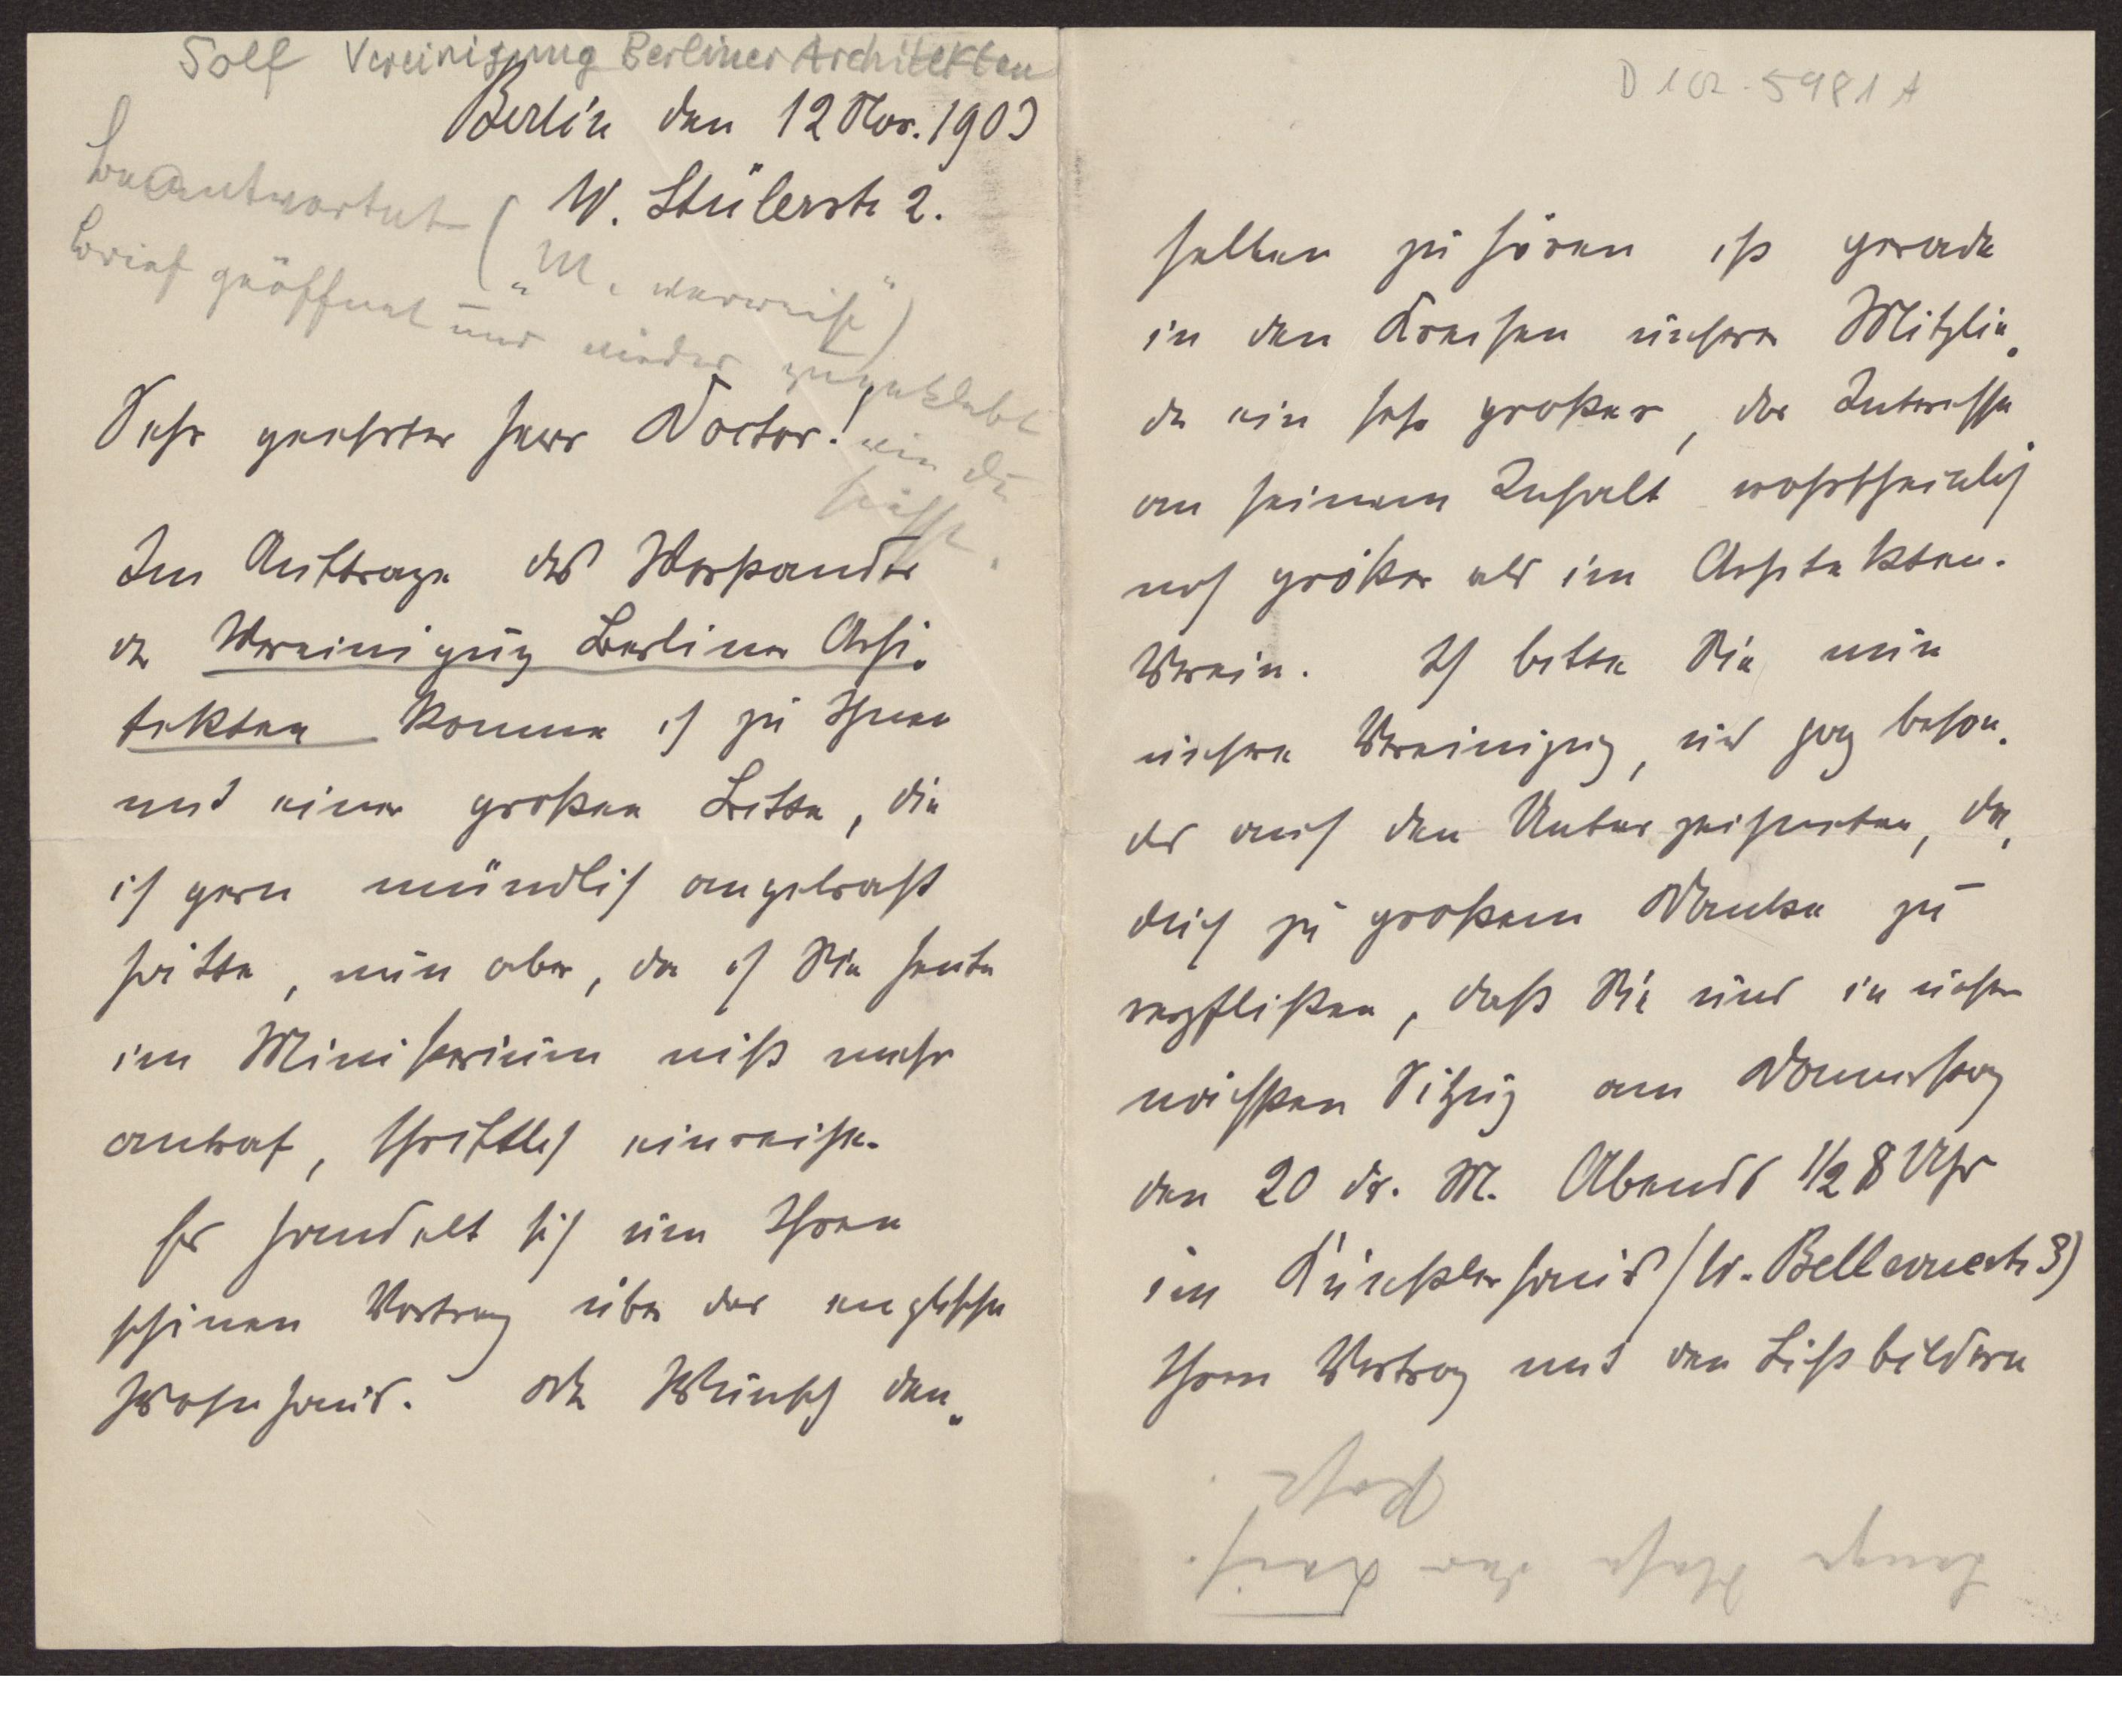 Solf Vereinigung Berliner Architekten
Berlin den 12 Nov. 1903
W. Stülerstr 2.
beantwortet
("M. verreist")
Brief geöffnet und wieder zugeklebt
wie Du
siehst.
Sehr geehrter Herr Doctor!
Im Auftrage des Vorstandes
der Vereinigung Berliner Archi-
tekten komme ich zu Ihnen
mit einer großen Bitte, die
ich gern mündlich angebracht
hätte, nun aber, da ich Sie heute
im Ministerium nicht mehr
antraf, schriftlich einreiche.
Es handelt sich um Ihren
schönen Vortrag über das englische
Wohnhaus. Der Wunsch den-
D 102-5981 A
selben zu hören ist gerade
in den Kreisen unserer Mitglie-
der ein sehr großer, das Interesse
an seinem Inhalt wahrscheinlich
noch größer als im Architekten-
Verein. Ich bitte Sie nun
unsere Vereinigung, und ganz beson-
ders auch den Unterzeichneten, da-
durch zu großem Danke zu
verpflichten, daß Sie uns in unserer
nächsten Sitzung am Donnerstag
den 20 ds. M. Abends 1/2 8 Uhr
im Künstlerhaus (W. Bellevuestr 3)
Ihren Vortrag mit den Lichtbildern